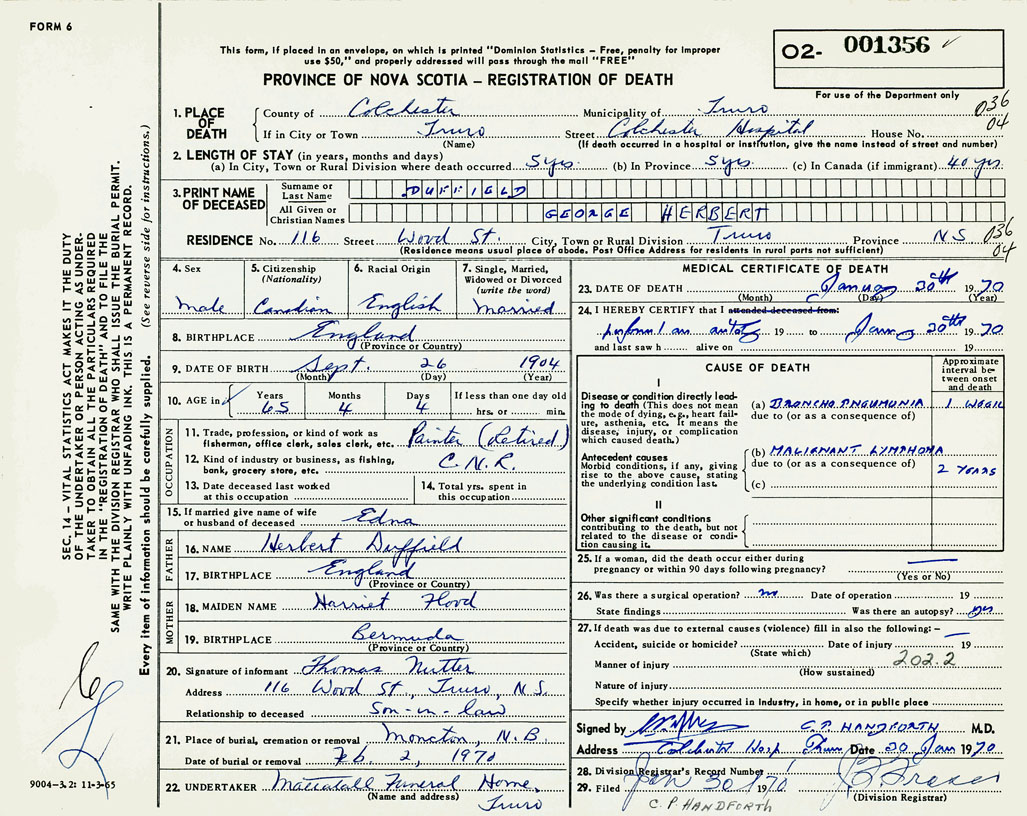 FORM 6
This form, if placed in an envelope, on which is printed "Dominion Statistics – Free, penalty for improper
use $50," and properly addressed will pass through the mail "FREE"
O2- 001356
PROVINCE OF NOVA SCOTIA – REGISTRATION OF DEATH
For use of the Department only
036
04
1. PLACE OF DEATH
County of Colchester Municipality of Truro
If in City or Town Truro Street Colchester Hospital House No.
(Name) (If death occurred in a hospital or institution, give the name instead of street and number)
2. LENGTH OF STAY (in years, months and days)
(a) In City, Town or Rural Division where death occurred 5 yrs. (b) In Province 5 yrs. (c) In Canada (if immigrant) 40 yrs.
3. PRINT NAME OF DECEASED
Surname or Last Name DUFFIELD
All Given or Christian Names GEORGE HERBERT
RESIDENCE No. 116 Street Wood St. City, Town or Rural Division Truro Province N S
036
04
(Residence means usual place of abode. Post Office Address for residents in rural parts not sufficient)
4. Sex
male
5. Citizenship (Nationality)
Canadian
6. Racial Origin
English
7. Single, Married, Widowed or Divorced (write the word)
Married
8. BIRTHPLACE England
(Province or Country)
9. DATE OF BIRTH Sept. 26 1904
(Month) (Day) (Year)
10. AGE in
Years Months Days If less than one day old
65 4 4 hrs. or min.
OCCUPATION
11. Trade, profession, or kind of work as
fisherman, office clerk, sales clerk, etc. Painter (Retired)
12. Kind of industry or business, as fishing,
bank, grocery store, etc. C.N.R.
13. Date deceased last worked
at this occupation
14. Total yrs. spent in
this occupation
15. If married give name of wife
or husband of deceased Edna
FATHER
16. NAME Herbert Duffield
17. BIRTHPLACE England
(Province or Country)
MOTHER
18. MAIDEN NAME Harriet Flood
19. BIRTHPLACE Bermuda
(Province or Country)
20. Signature of informant Thomas Nutter
Address 116 Wood St., Truro, N.S.
Relationship to deceased Son-in-law
21. Place of burial, cremation or removal Moncton, N.B.
Date of burial or removal Feb. 2, 1970
22. UNDERTAKER Mattatall Funeral Home,
(Name and address) Truro
MEDICAL CERTIFICATE OF DEATH
23. DATE OF DEATH January 30th 1970
(Month) (Day) (Year)
24. I HEREBY CERTIFY that I attended deceased from:
19 to Jany 30th 1970
and last saw h alive on 19
CAUSE OF DEATH
Approximate interval between onset and death
I
Disease or condition directly leading to death (This does not mean the mode of dying, e.g., heart failure, asthenia, etc. It means the disease, injury, or complication which caused death.)
(a) BRONCHOPNEUMONIA 1 WEEK
due to (or as a consequence of)
Antecedent causes
Morbid conditions, if any, giving rise to the above cause, stating the underlying condition last.
(b) MALIGNANT LYMPHOMA
due to (or as a consequence of) 2 YEARS
(c)
II
Other significant conditions
contributing to the death, but not related to the disease or condition causing it.
25. If a woman, did the death occur either during
pregnancy or within 90 days following pregnancy?
(Yes or No)
26. Was there a surgical operation? no Date of operation 19
State findings Was there an autopsy? yes
27. If death was due to external causes (violence) fill in also the following: –
Accident, suicide or homicide? Date of injury 19
(State which) 202.2
Manner of injury
(How sustained)
Nature of injury
Specify whether injury occurred in industry, in home, or in public place
Signed by C.P. HANDFORTH M.D.
Address Colchester Hosp Truro Date 30 Jan 1970
28. Division Registrar's Record Number
29. Filed Jan 30 1970 Fraser
(Division Registrar)
C.P HANDFORTH
SEC. 14 – VITAL STATISTICS ACT MAKES IT THE DUTY
OF THE UNDERTAKER OR PERSON ACTING AS UNDER-
TAKER TO OBTAIN ALL THE PARTICULARS REQUIRED
IN THE "REGISTRATION OF DEATH" AND TO FILE THE
SAME WITH THE DIVISION REGISTRAR WHO SHALL ISSUE THE BURIAL PERMIT.
WRITE PLAINLY WITH UNFADING INK. THIS IS A PERMANENT RECORD.
Every item of information should be carefully supplied. (See reverse side for instructions.)
9004–3.2: 11-3-65